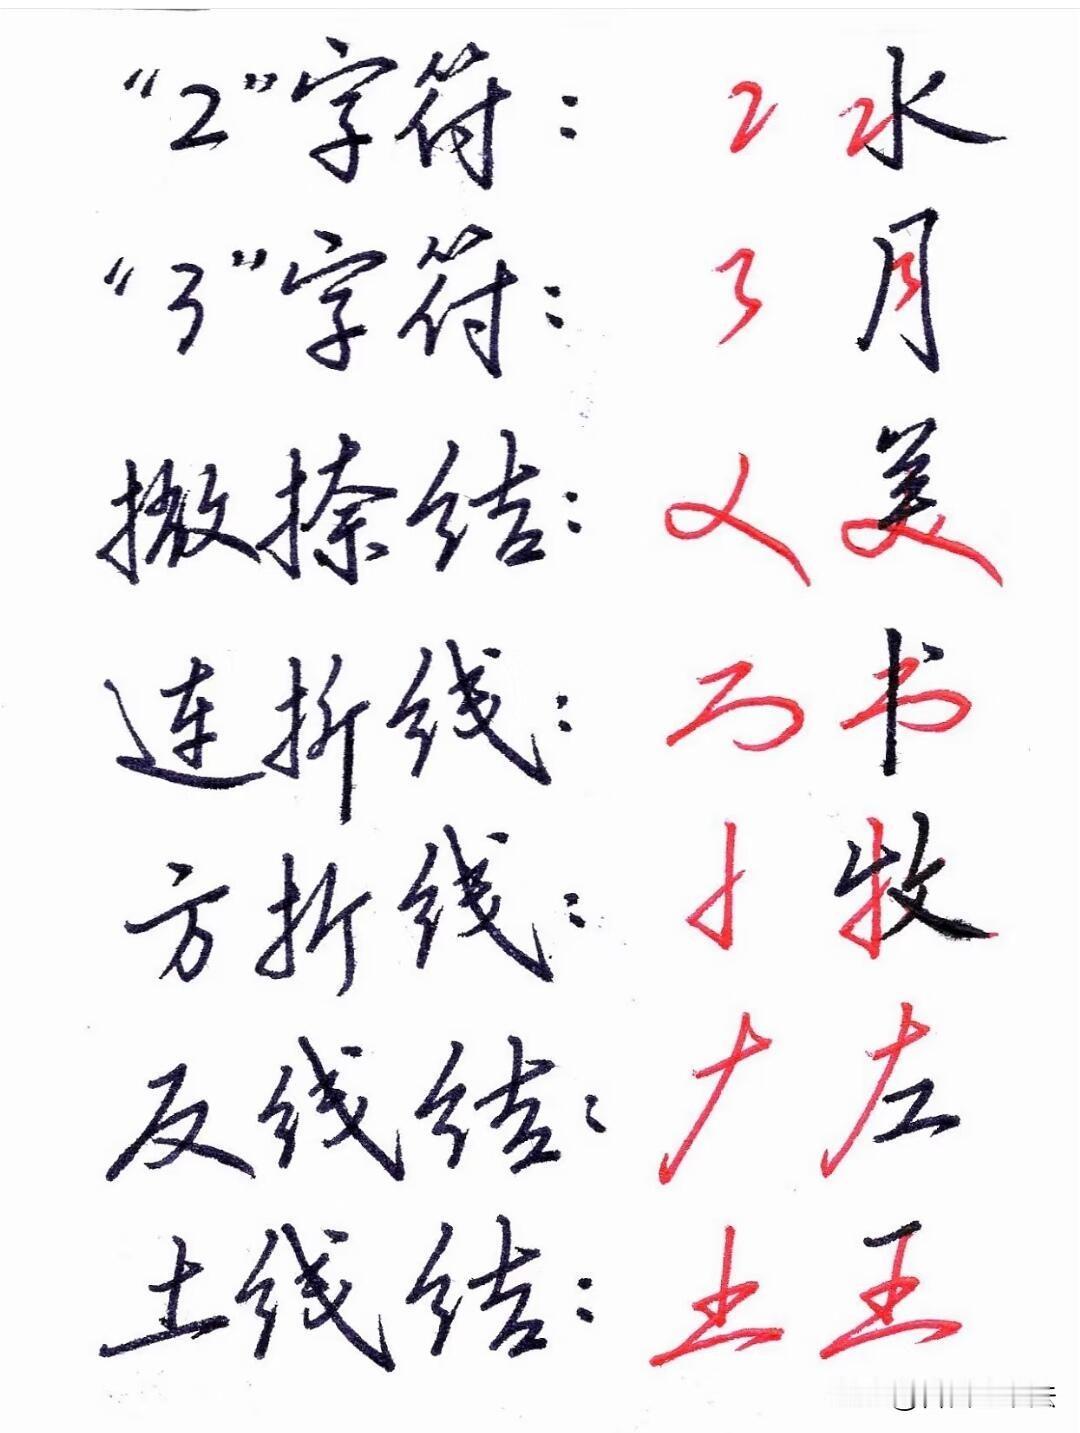 “2”字符： 2 水
“3”字符： 3 月
撇捺结： 乂 美
连折线： 书
方折线： 牧
反线结： 𠂇 左
土线结： 土 王